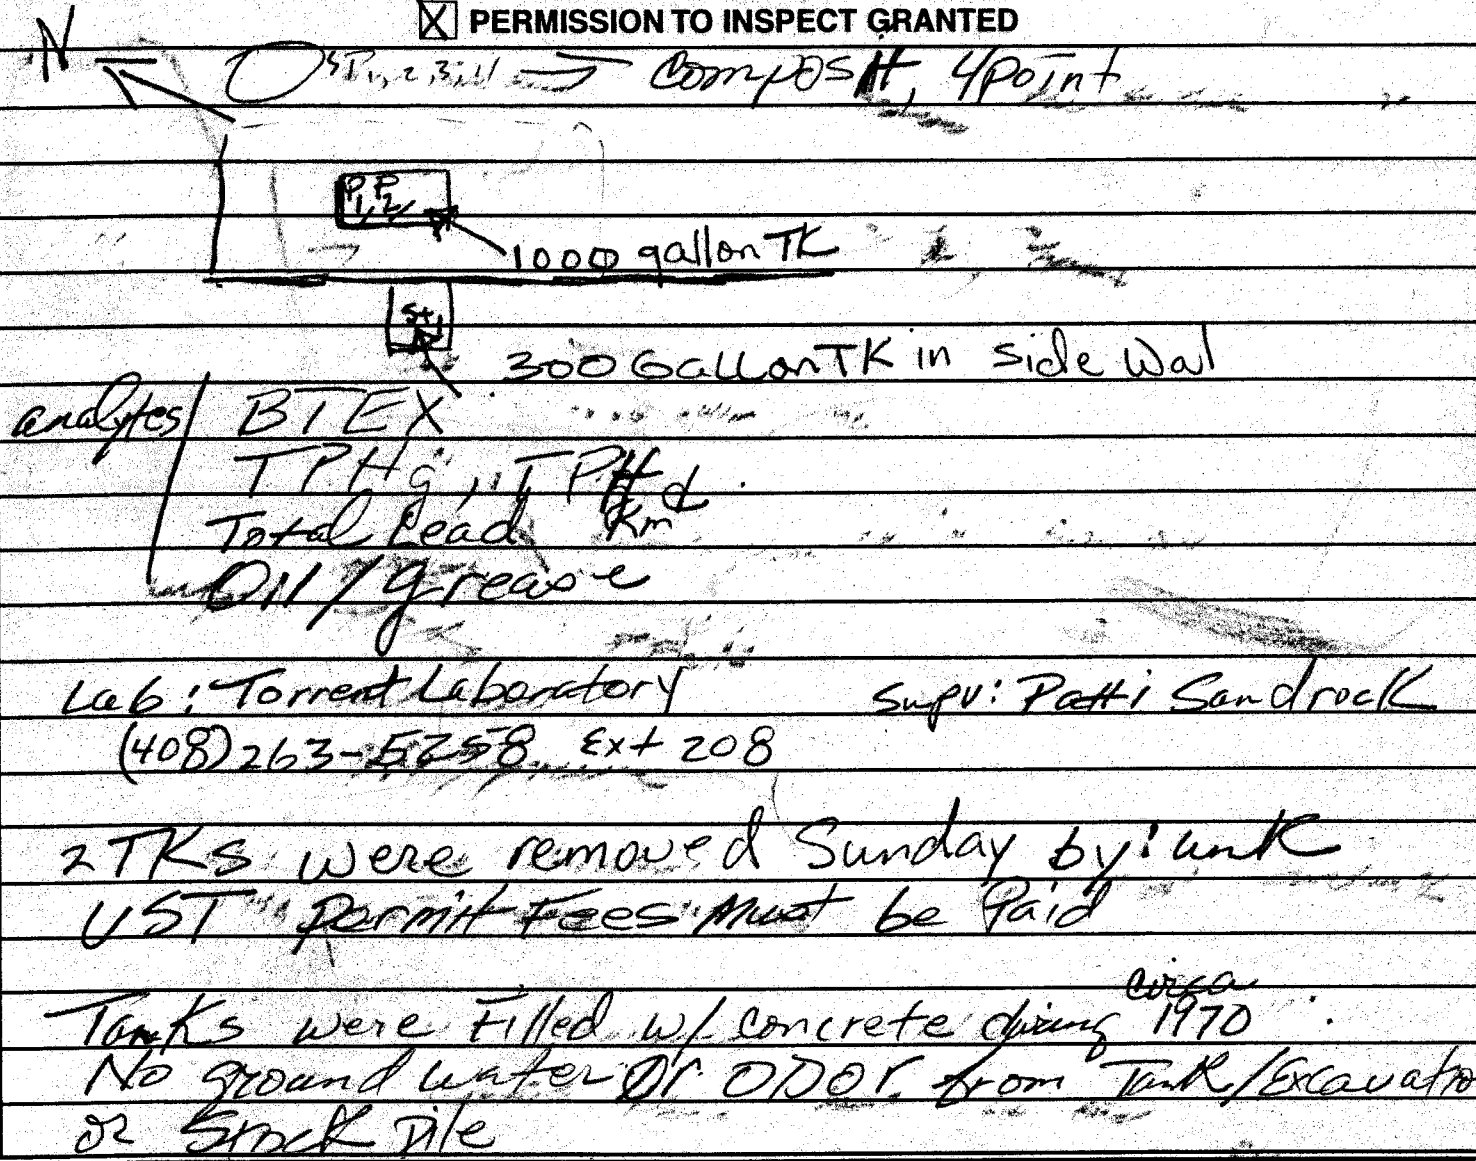 ☒ PERMISSION TO INSPECT GRANTED
N
SP1,2,3,4 → Composit, 4point
P1, P2
1000 gallon TK
St1
300 Gallon TK in side wal
analytes
BTEX
TPHg, TPHd
Total Lead Km
Oil/grease
Lab: Torrent Laboratory Supv: Patti Sandrock
(408)263-5258 Ext 208
2 TKs were removed Sunday by: unk
UST Permit Fees Must be Paid
circa
Tanks were Filled w/ concrete during 1970
No ground water or ODOr from Tank/Excavatio
or Stock pile